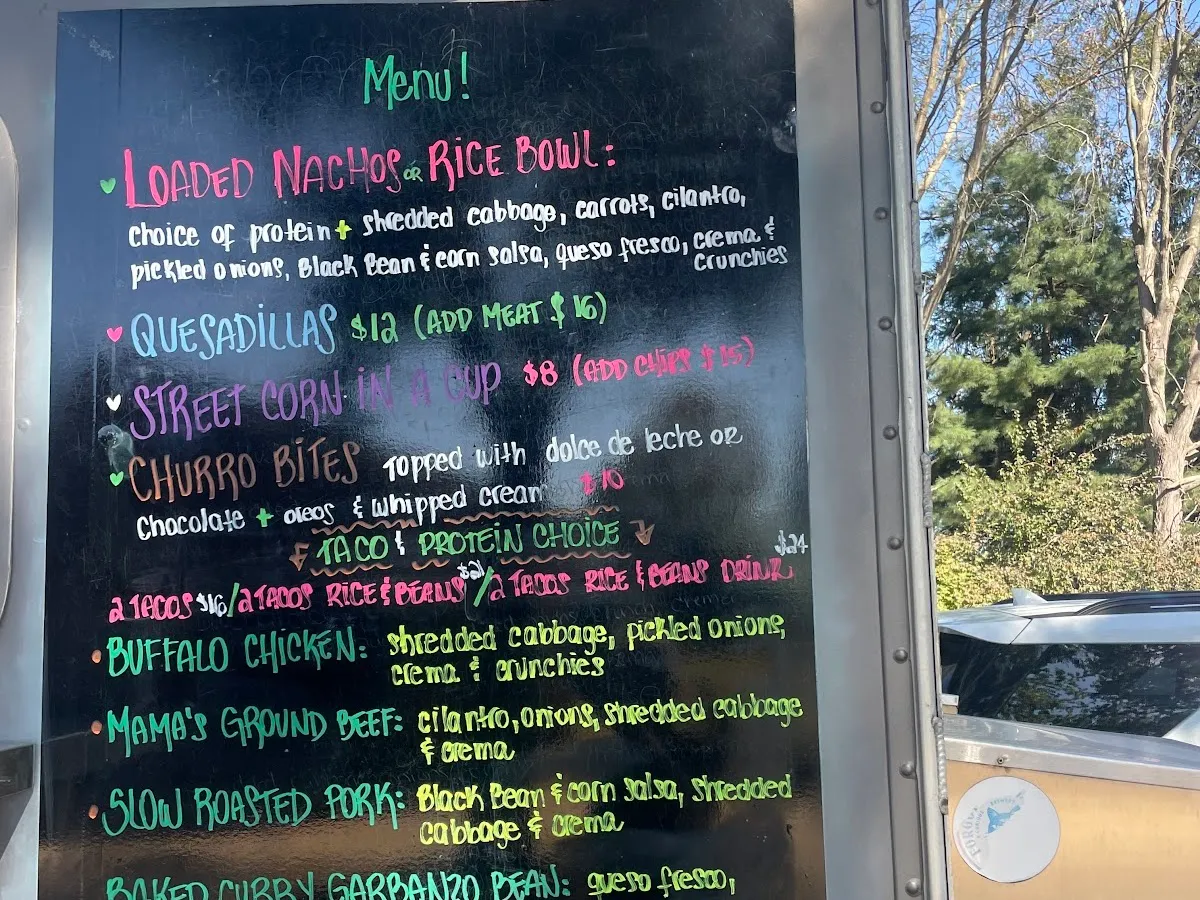 Menu!
LOADED NACHOS OR RICE BOWL:
choice of protein + shredded cabbage, carrots, cilantro,
pickled onions, Black Bean & corn salsa, queso fresco, crema &
crunchies
QUESADILLAS $12 (ADD MEAT $16)
STREET CORN IN A CUP $8 (ADD CHIPS $15)
CHURRO BITES TOPPED with dolce de leche or
chocolate + oreos & whipped cream $10
TACO & PROTEIN CHOICE
2 TACOS $16/2 TACOS RICE & BEANS $21/2 TACOS RICE & BEANS DRINK $24
BUFFALO CHICKEN: shredded cabbage, pickled onions,
crema & crunchies
MAMA'S GROUND BEEF: cilantro, onions, shredded cabbage
& crema
SLOW ROASTED PORK: Black Bean & corn salsa, shredded
cabbage & crema
BAKED CURRY GARBANZO BEAN: queso fresco,